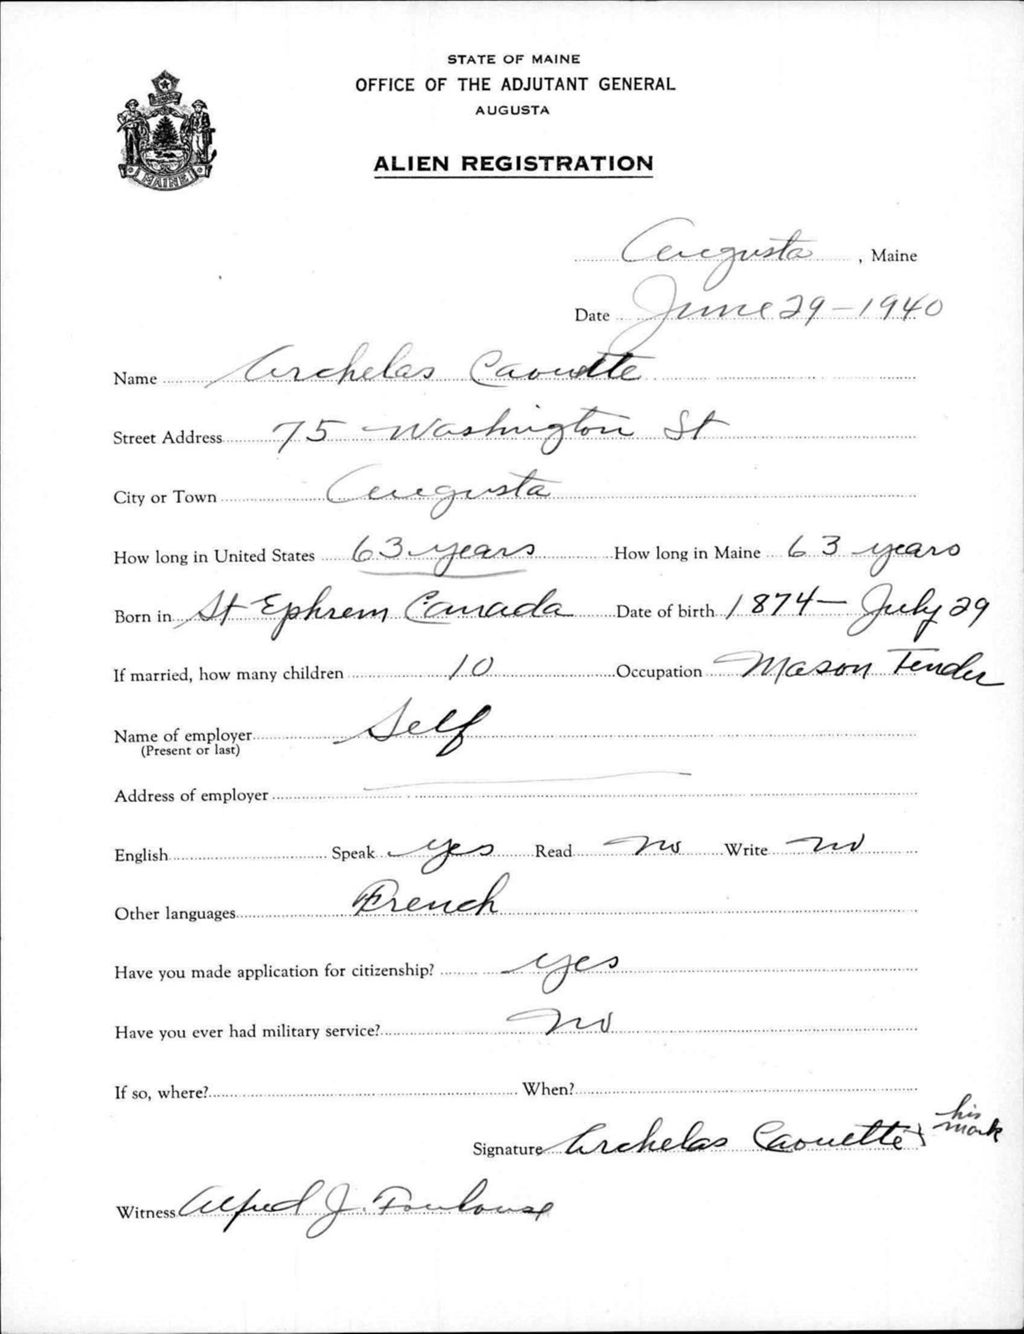 STATE OF MAINE
OFFICE OF THE ADJUTANT GENERAL
AUGUSTA
ALIEN REGISTRATION
MAINE
Augusta, Maine
Date June 29-1940
Name Archelas Caouette
Street Address 75 Washington St
City or Town Augusta
How long in United States 63 years How long in Maine 63 years
Born in St Ephrem Canada Date of birth 1874- July 29
If married, how many children 10 Occupation Mason Tender
Name of employer Self
(Present or last)
Address of employer
English Speak yes Read no Write no
Other languages French
Have you made application for citizenship? yes
Have you ever had military service? no
If so, where? When?
Signature Archelas Caouette x his mark
Witness Alfred J. Toulouse